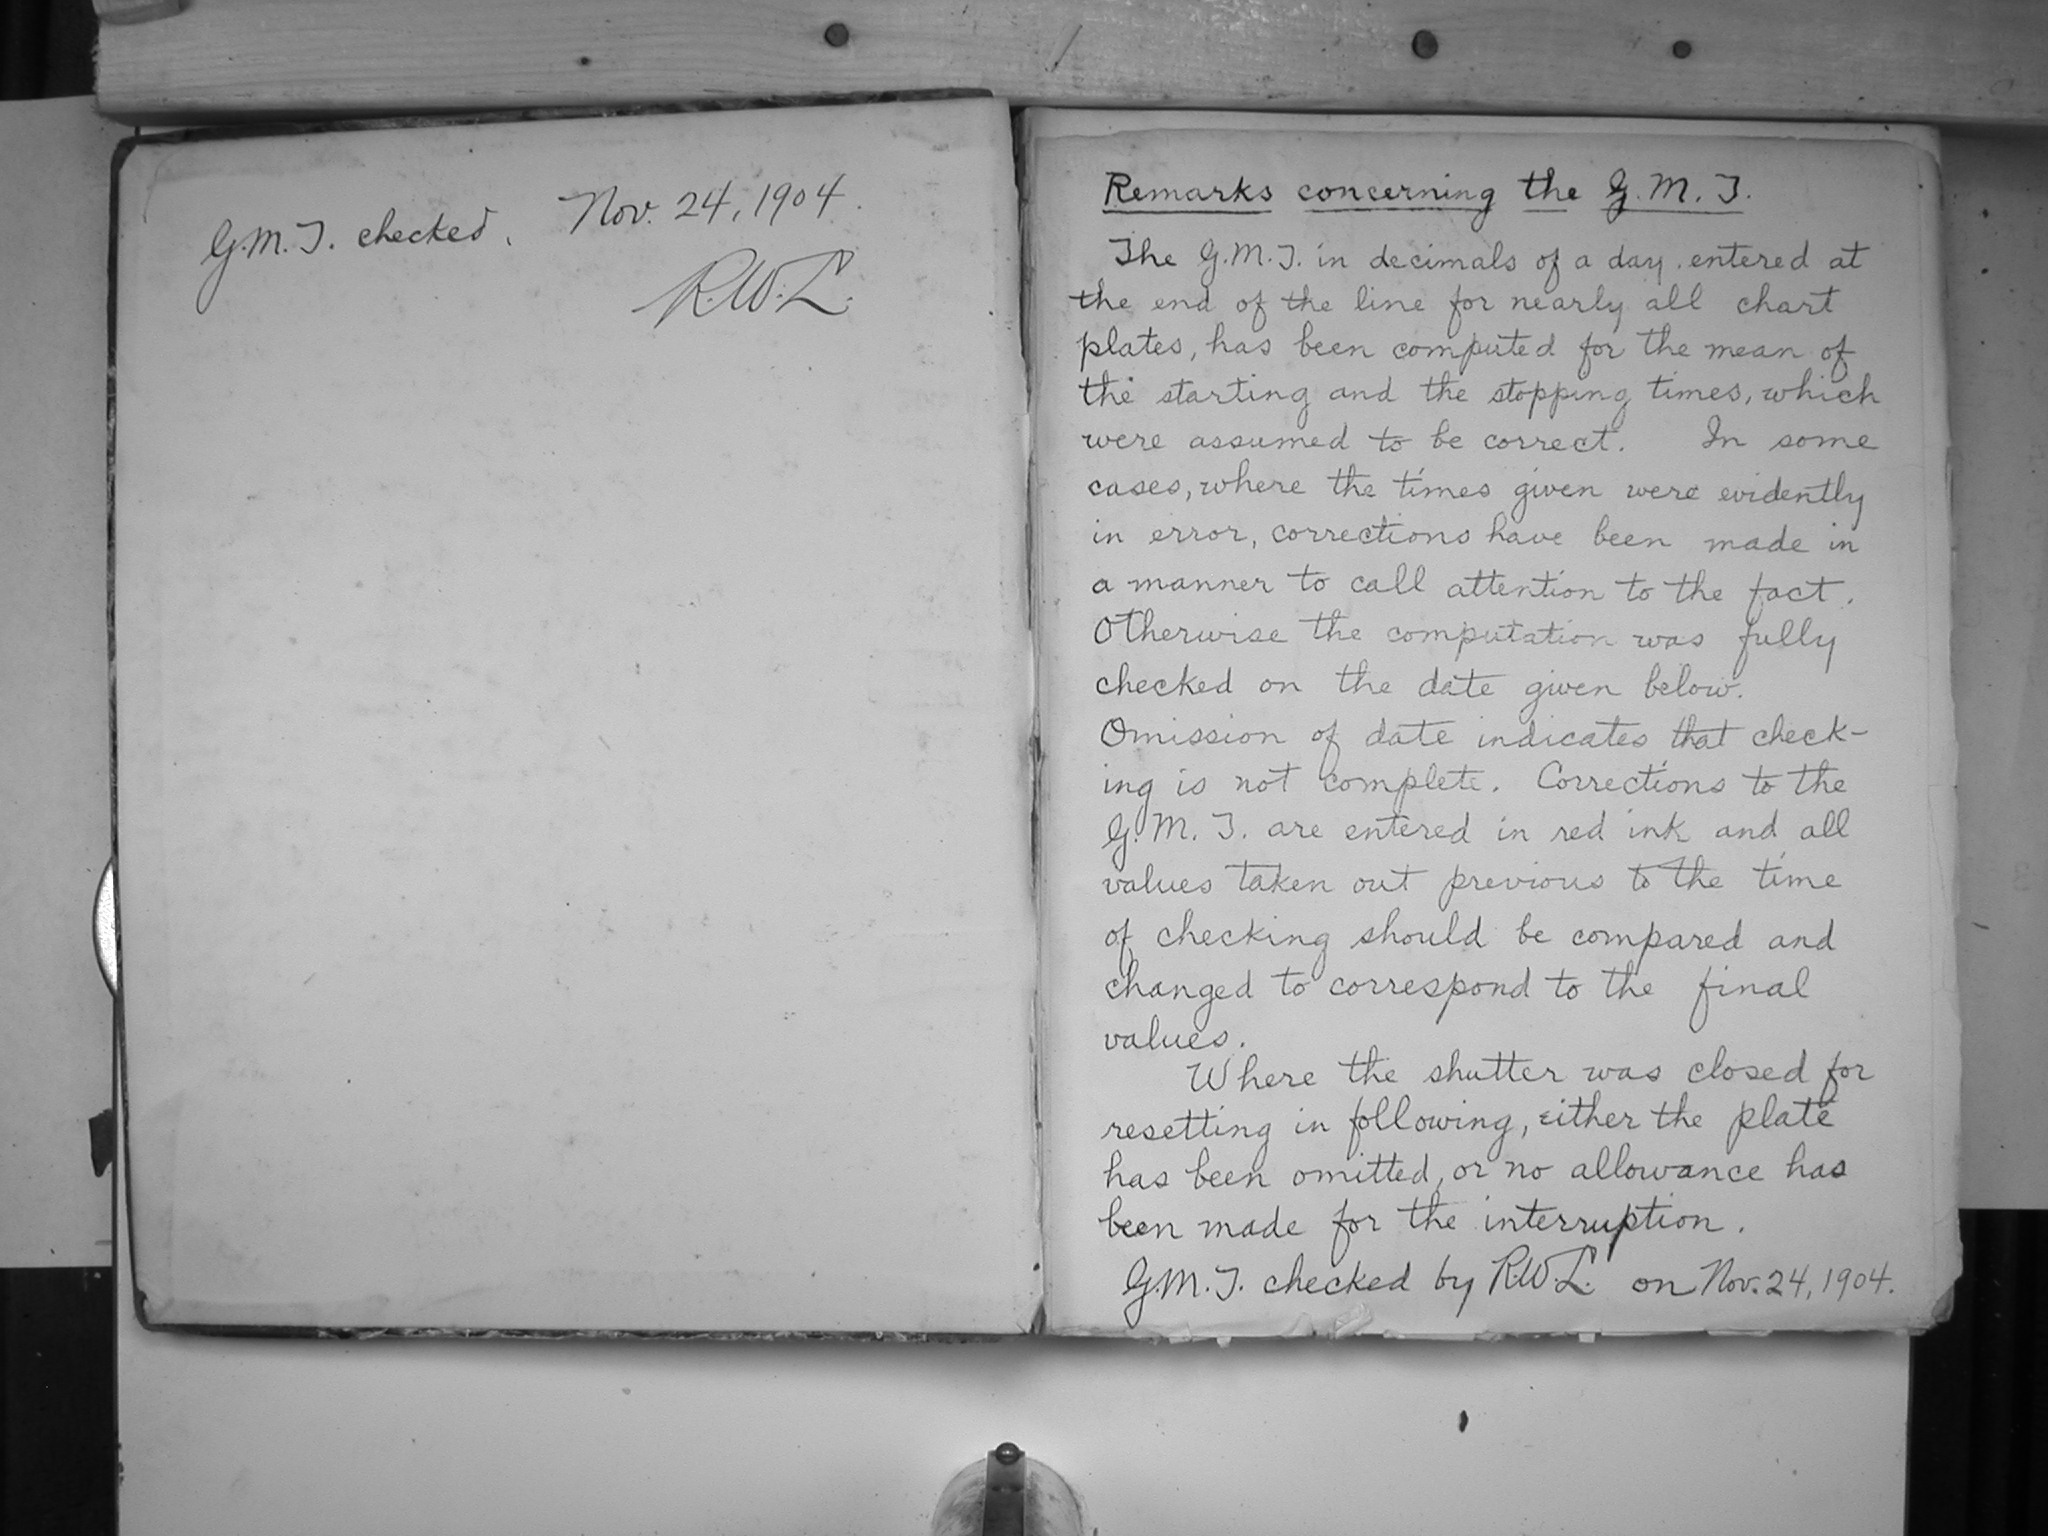 G.M.T. checked. Nov. 24, 1904.
R.W.L.
Remarks concerning the G.M.T.
The G.M.T. in decimals of a day entered at
the end of the line for nearly all chart
plates, has been computed for the mean of
the starting and the stopping times, which
were assumed to be correct. In some
cases, where the times given were evidently
in error, corrections have been made in
a manner to call attention to the fact.
Otherwise the computation was fully
checked on the date given below.
Omission of date indicates that check-
ing is not complete. Corrections to the
G.M.T. are entered in red ink and all
values taken out previous to the time
of checking should be compared and
changed to correspond to the final
values.
Where the shutter was closed for
resetting in following, either the plate
has been omitted, or no allowance has
been made for the interruption.
G.M.T. checked by R.W.L. on Nov. 24, 1904.